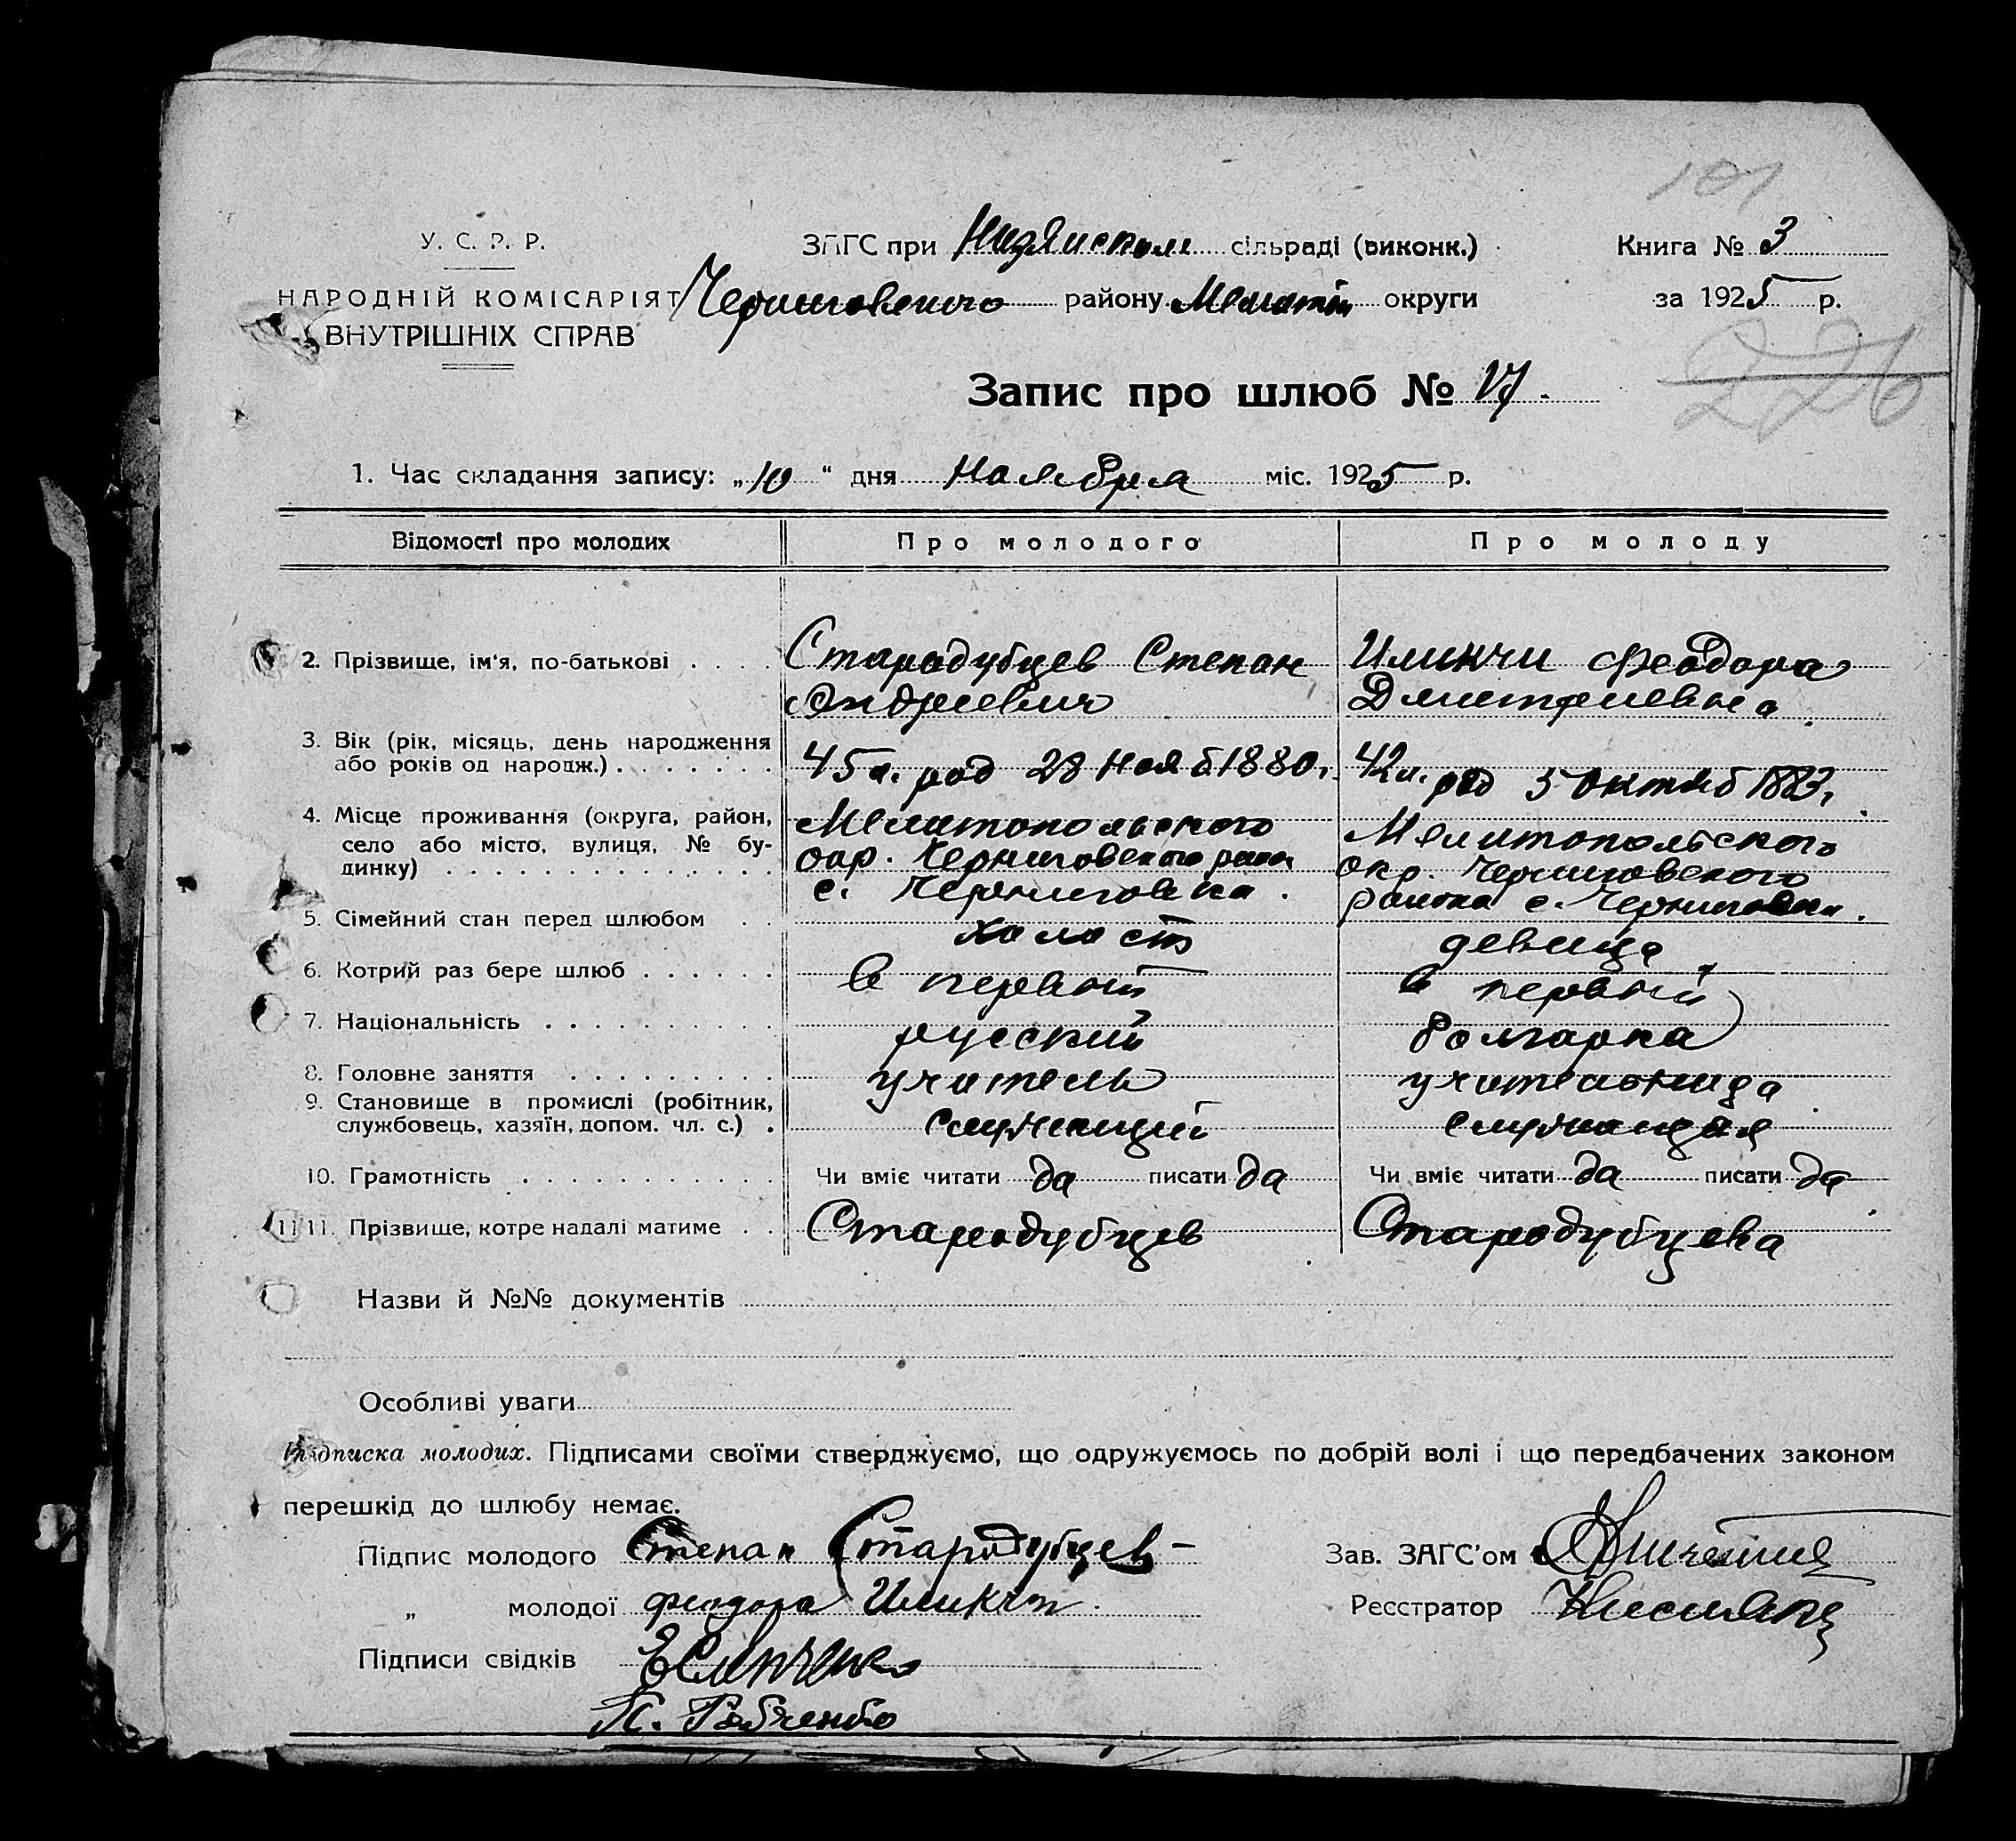 101
У. С. Р. Р.
ЗАГС при Низянском сільраді (виконк.)
Книга № 3
НАРОДНІЙ КОМІСАРІЯТ
Черниговского району Мелитоп округи
за 1925 р.
ВНУТРІШНІХ СПРАВ
226
Запис про шлюб № 17.
1. Час складання запису: „10“ дня Ноября міс. 1925 р.
Відомості про молодих
Про молодого
Про молоду
2. Прізвище, ім'я, по-батькові
Стародубцев Степан
Андреевич
Иликчи Феодора
Дмитриевна
3. Вік (рік, місяць, день народження
або років од народж.)
45 л. род 28 Нояб 1880 г.
42 л. род 5 Октяб 1883 г.
4. Місце проживання (округа, район,
село або місто, вулиця, № бу-
динку)
Мелитопольского
окр. Черниговского района
с. Черниговка.
Мелитопольского
окр. Черниговского
района с. Черниговки.
5. Сімейний стан перед шлюбом
холост
девица
6. Котрий раз бере шлюб
в первый
в первый
7. Національність
русский
болгарка
8. Головне заняття
учитель
учительница
9. Становище в промислі (робітник,
службовець, хазяїн, допом. чл. с.)
служащий
служащая
10. Грамотність
Чи вміє читати да писати да
Чи вміє читати да писати да
11. Прізвище, котре надалі матиме
Стародубцев
Стародубцева
Назви й №№ документів
Особливі уваги
Підписка молодих. Підписами своїми стверджуємо, що одружуємось по добрій волі і що передбачених законом
перешкід до шлюбу немає.
Підпис молодого Степан Стародубцев
Зав. ЗАГС'ом
„ молодої Феодора Иликчи
Реєстратор
Підписи свідків